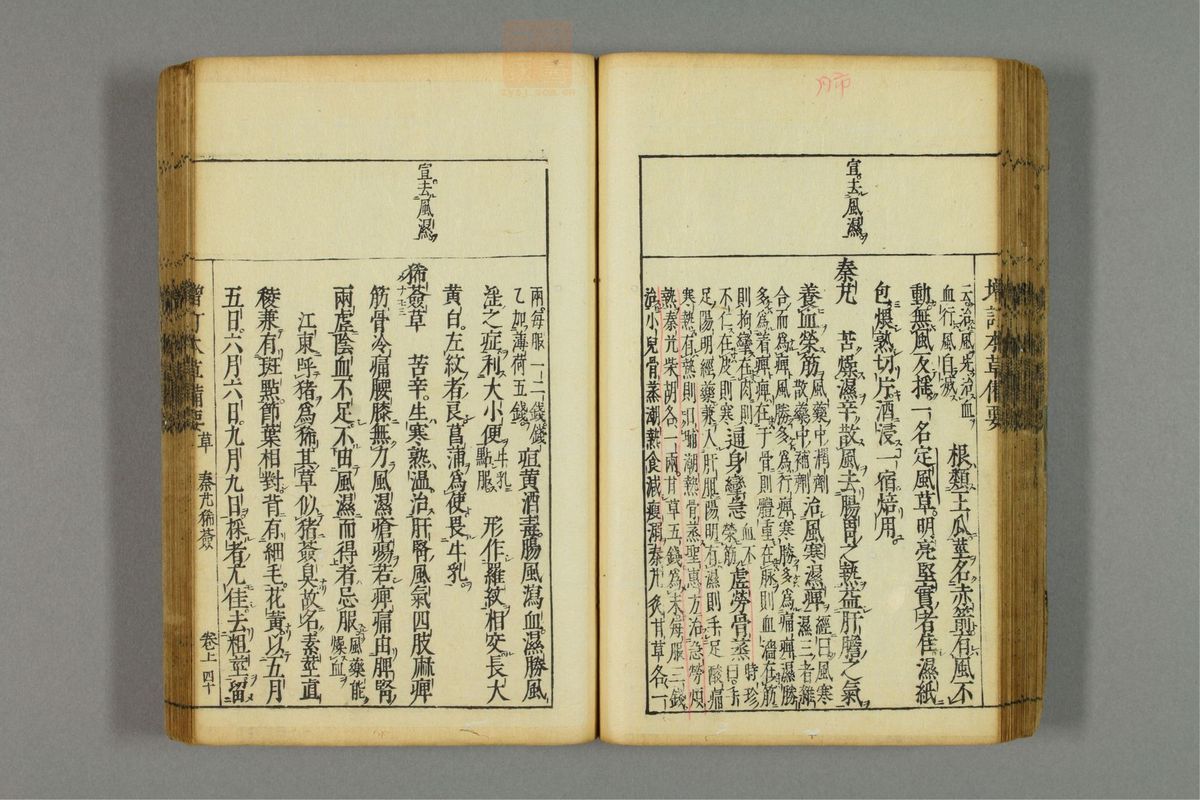 肺
宜去風濕
増訂本草備要
云治風先治血
血行風自滅
根類王瓜莖名赤箭有風不
動無風反搖一名定風草明亮堅實者佳濕紙
包煨熟切片酒浸一宿焙用
秦艽 苦燥濕辛散風去腸胃之熱益肝膽之氣
養血榮筋
風藥中潤劑
散藥中補劑
治風寒濕痺
經曰風寒
濕三者雜
合而為痺風勝多為行痺寒勝多為痛痺濕勝
多為着痺痺在于骨則體重在脉則血濇在筋
則拘攣在肉則
不仁在皮則寒
通身攣急
血不
榮筋
虛勞骨蒸
時珍
曰手
足陽明經藥兼入肝胆陽明有濕則手足酸痛
寒熱有熱則日晡潮熱骨蒸聖惠方治急勞煩
熱秦艽柴胡各一兩甘草五錢為末每服三錢
治小兒骨蒸潮熱食減瘦弱秦艽炙甘草各一
宜去風濕
兩每服一二錢錢
乙加薄荷五錢
疸黃酒毒腸風瀉血濕勝風
淫之症利大小便
牛乳
點服
形作羅紋相交長大
黃白左紋者良菖蒲為使畏牛乳
豨薟草 苦辛生寒熟溫治肝腎風氣四肢麻痺
メナモミ
筋骨冷痛腰膝無力風濕瘡瘍若痺痛由脾腎
兩虛陰血不足不由風濕而得者忌服
風藥能
燥血
江東呼猪為豨其草似猪薟臭故名素莖直
稜兼有斑點節葉相對背有細毛花黃以五月
五日六月六日九月九日採者尤佳去粗莖留
増訂本草備要 草 秦艽豨薟 卷上 四十